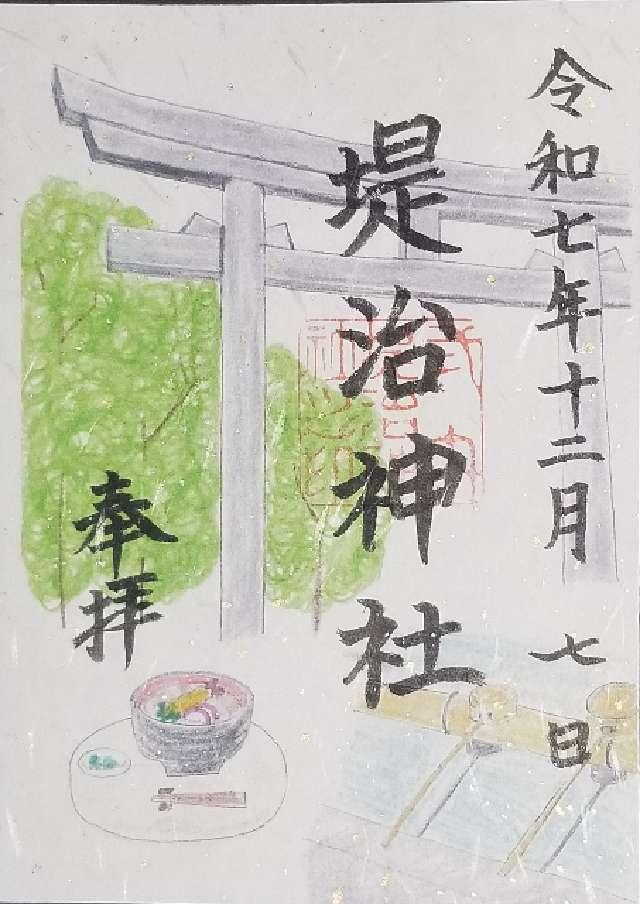 令和七年十二月七日
堤治神社
奉拝